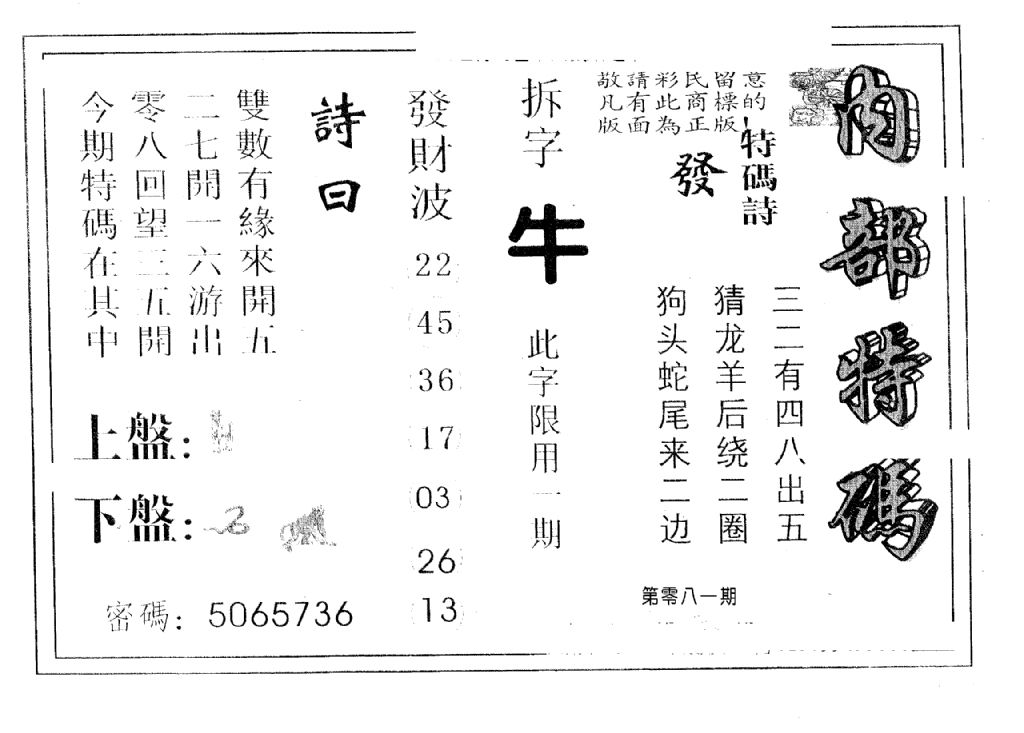 內部特碼
敬請彩民留意
凡有此商標的
版面為正版
特碼詩
發
三二有四八出五
猜龙羊后绕二圈
狗头蛇尾来二边
第零八一期
拆字
牛
此字限用一期
發財波
22
45
36
17
03
26
13
詩曰
雙數有緣來開五
二七開一六游出
零八回望三五開
今期特碼在其中
上盤:
下盤:
密碼: 5065736